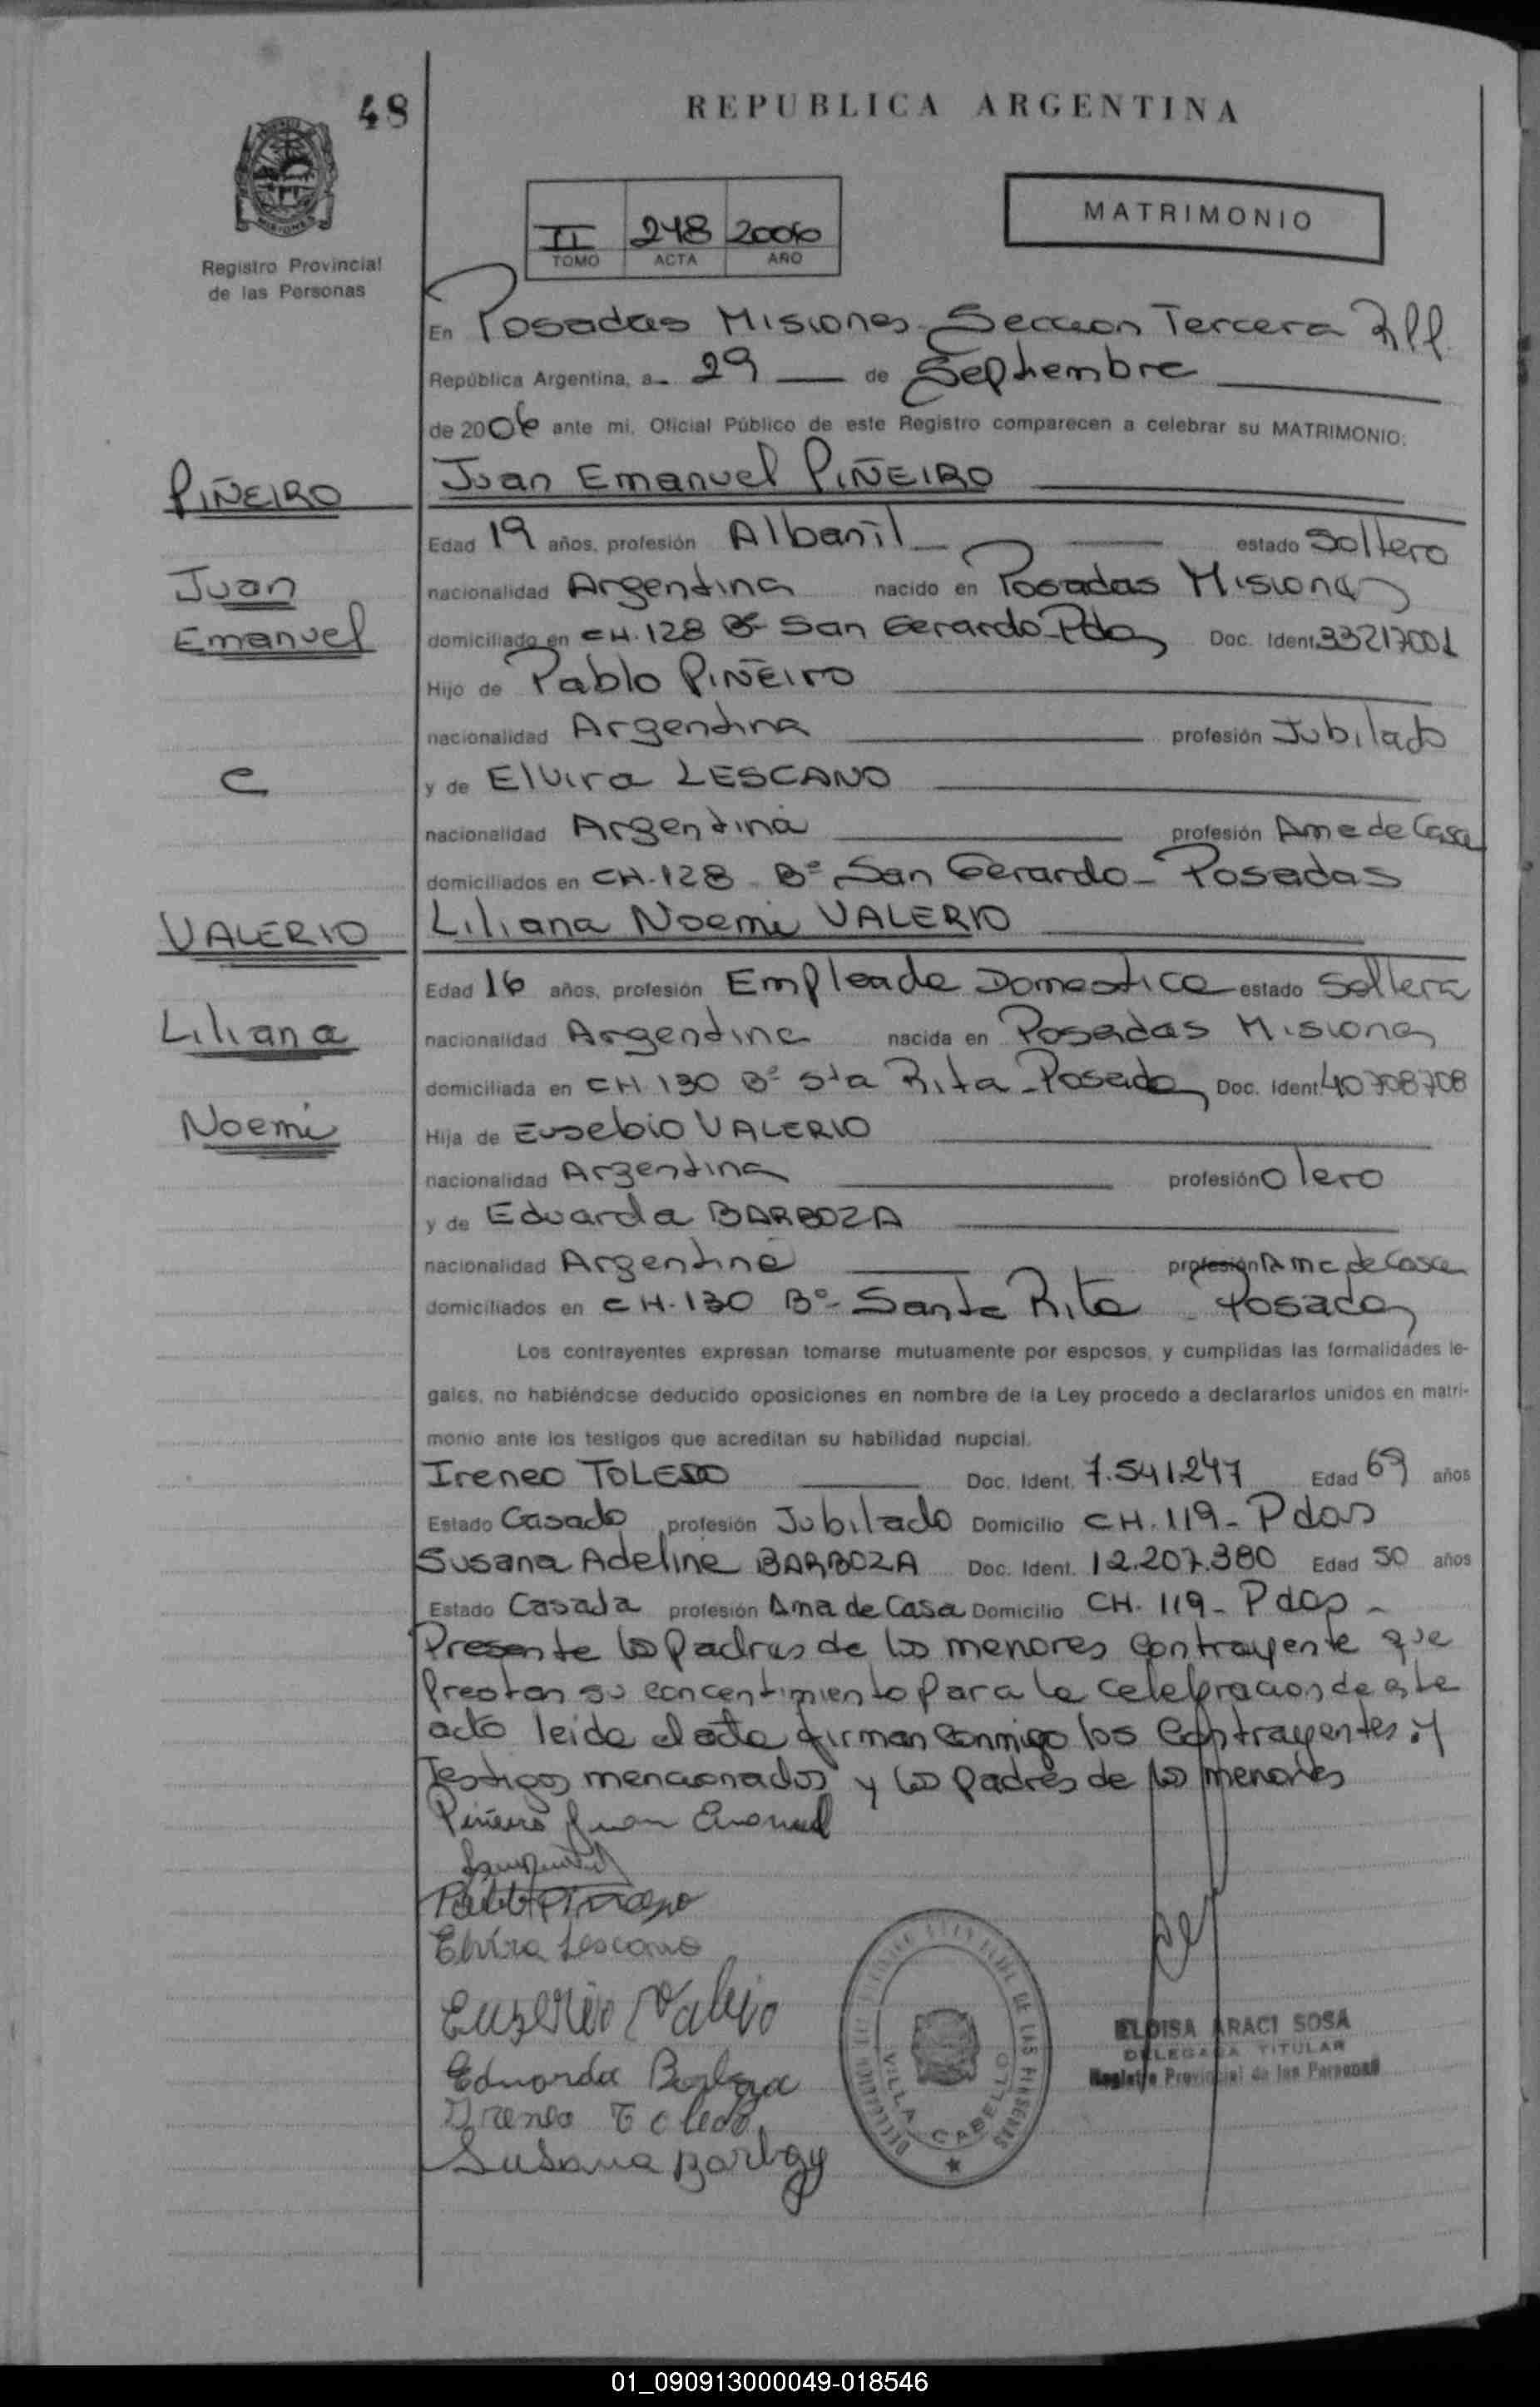 48
REPUBLICA ARGENTINA
MATRIMONIO
II 248 2006
TOMO ACTA AÑO
Registro Provincial
de las Personas
En Posadas Misiones Seccion Tercera
República Argentina, a 29 de Septiembre
de 2006 ante mi, Oficial Público de este Registro comparecen a celebrar su MATRIMONIO:
PIÑEIRO
Juan Emanuel PIÑEIRO
Edad 19 años, profesión Albañil estado Soltero
Juan
nacionalidad Argentina nacido en Posadas Misiones
Emanuel
domiciliado en CH. 128 Bº San Gerardo-Pdas Doc. Ident. 33217001
Hijo de Pablo PIÑEIRO
nacionalidad Argentina profesión Jubilado
C
y de Elvira LESCANO
nacionalidad Argentina profesión Ama de Casa
domiciliados en CH.128 Bº San Gerardo - Posadas
VALERIO
Liliana Noemi VALERIO
Edad 16 años, profesión Empleada Domestica estado Soltera
Liliana
nacionalidad Argentina nacida en Posadas Misiones
domiciliada en CH 130 Bº Sta Rita - Posadas Doc. Ident. 40708708
Noemi
Hija de Eusebio VALERIO
nacionalidad Argentina profesión Olero
y de Eduarda BARBOZA
nacionalidad Argentina profesión Ama de Casa
domiciliados en CH.130 Bº Santa Rita - Posadas
Los contrayentes expresan tomarse mutuamente por esposos, y cumplidas las formalidades le-
gales, no habiéndose deducido oposiciones en nombre de la Ley procedo a declararlos unidos en matri-
monio ante los testigos que acreditan su habilidad nupcial.
Ireneo TOLEDO Doc. Ident. 7.541.247 Edad 69 años
Estado Casado profesión Jubilado Domicilio CH. 119 - Pdas
Susana Adelina BARBOZA Doc. Ident. 12.207.380 Edad 50 años
Estado Casada profesión Ama de Casa Domicilio CH. 119 - Pdas -
Presente los Padres de los menores contrayente que
prestan su concentimiento para la celebracion de este
acto leida el acta firman conmigo los contrayentes y
Testigos mencionados y los padres de los menores
Piñeiro Juan Emanuel
Elvira Lescano
Euserio Valerio
Eduarda Barboza
Ireneo Toledo
Susana Barboza
DE LAS PERSONAS
VILLA CABELLO
ELOISA ARACI SOSA
DELEGADA TITULAR
Registro Provincial de las Personas
01_090913000049-018546